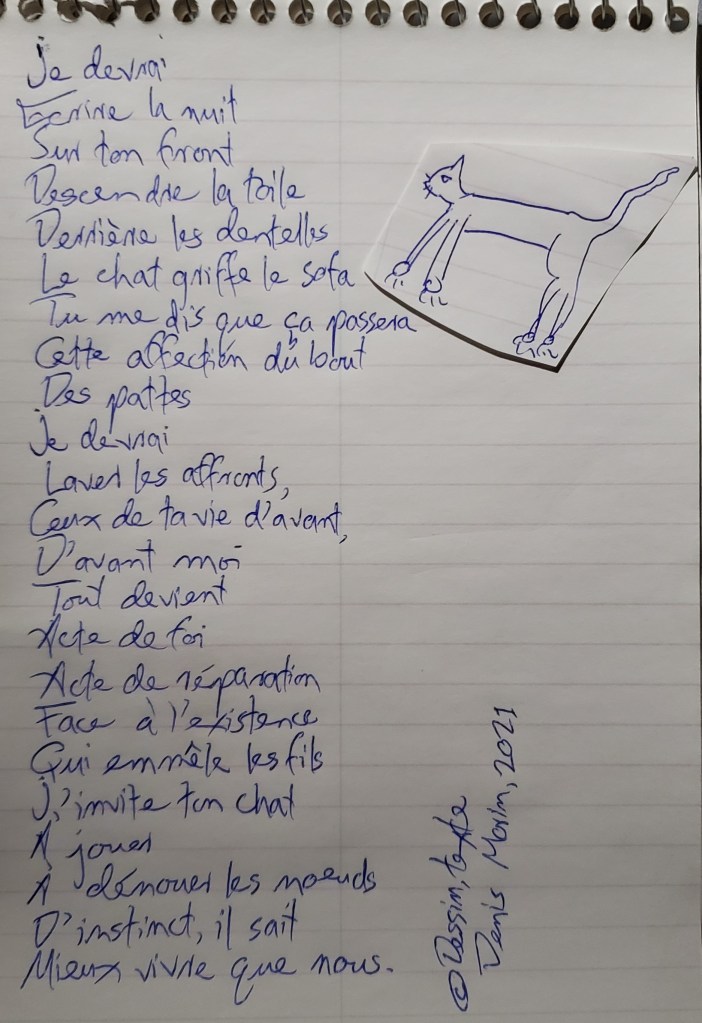 Je devrai
Ecrire la nuit
Sur ton front
Descendre la toile
Derrière les dentelles
Le chat griffe le sofa
Tu me dis que ça passera
Cette affection du bout
Des pattes
Je devrai
Laver les affronts,
Ceux de ta vie d'avant,
D'avant moi
Tout devient
Acte de foi
Acte de réparation
Face à l'existence
Qui emmêle les fils
J'invite ton chat
A jouer
A dénouer les noeuds
D'instinct, il sait
Mieux vivre que nous.
© Dessin, texte
Denis Morin, 2021